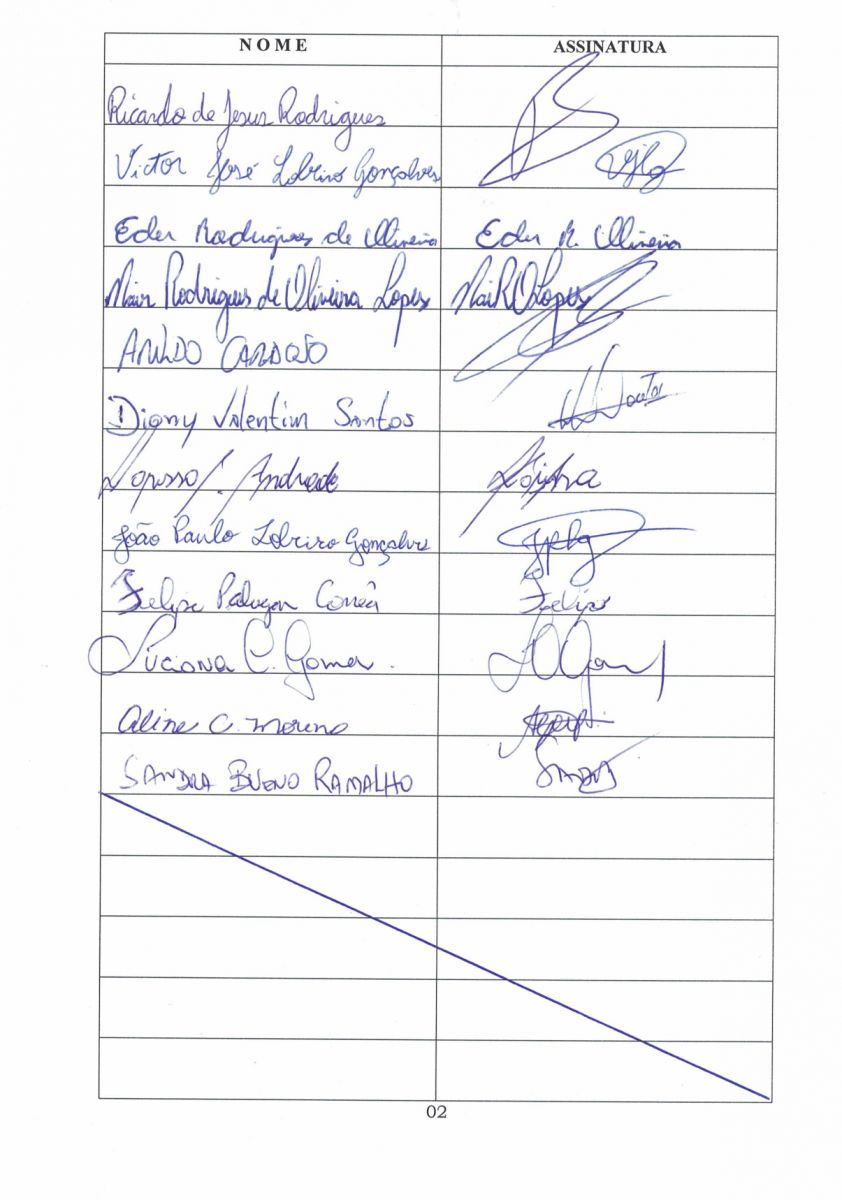 NOME ASSINATURA
Ricardo de Jesus Rodrigues
Victor José Lobeiro Gonçalves VJLG
Eder Rodrigues de Oliveira Eder R. Oliveira
Nair Rodrigues de Oliveira Lopes Nair R O Lopes
Arildo Cardoso
Digny Valentim Santos
Andrade
João Paulo Lobeiro Gonçalves JPLG
Felipe Correa Felipe
Luciana C. Gomes.
Aline C. Moreno
SANDRA BUENO RAMALHO
02